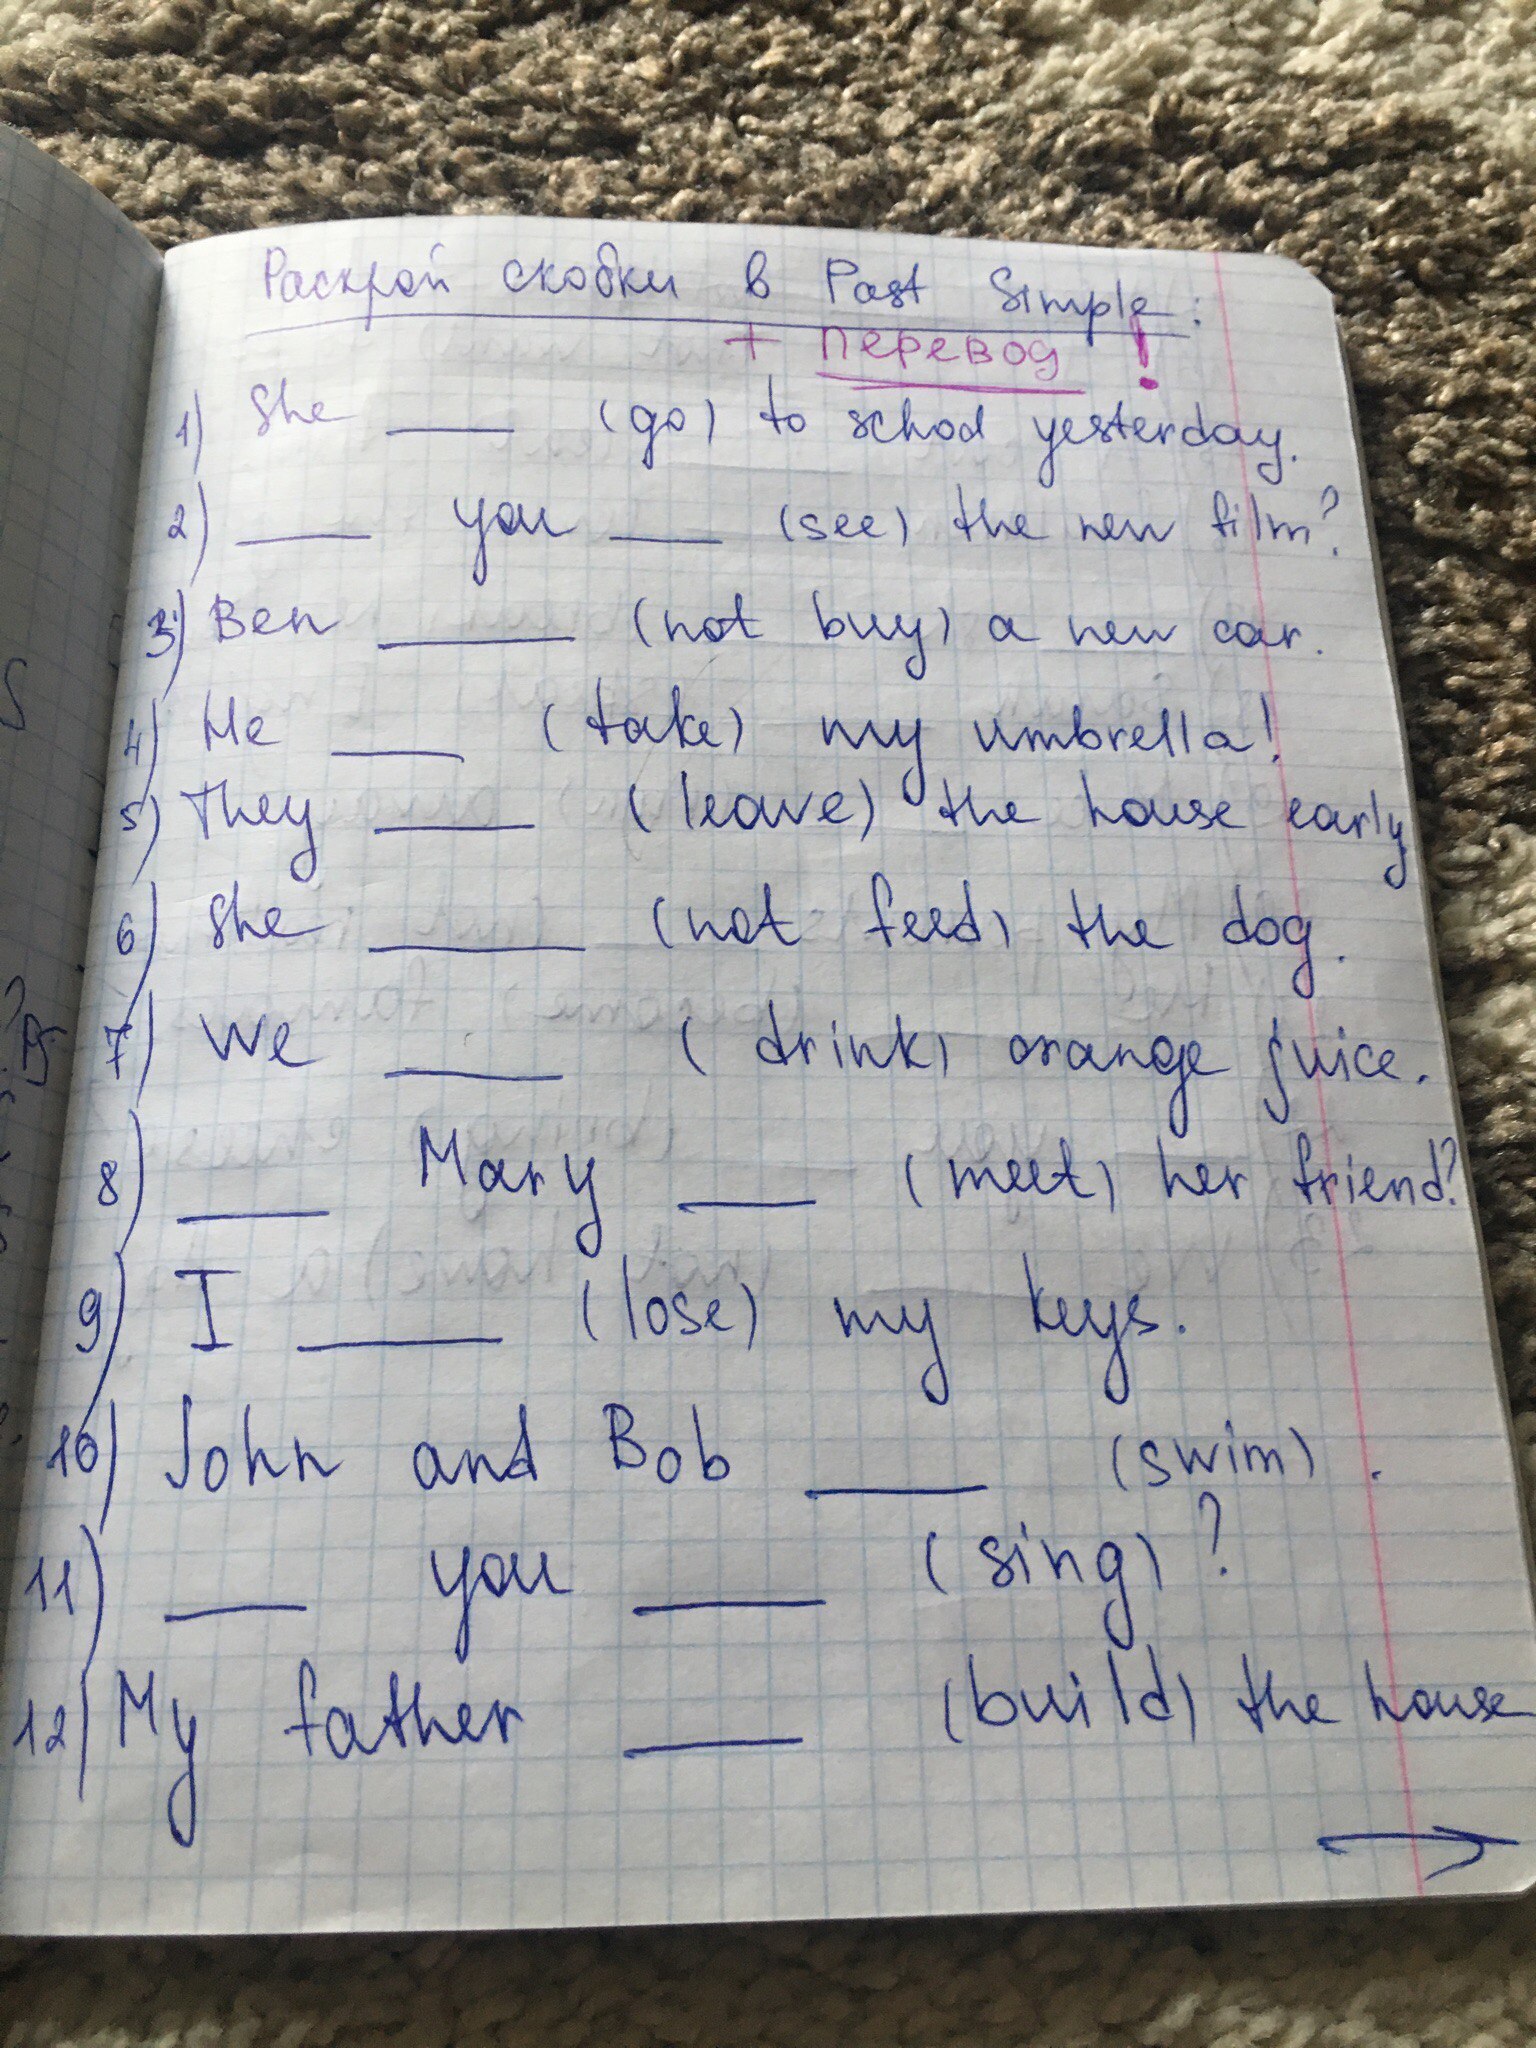 Раскрой скобки в Past Simple:
+ перевод!
1) She ____ (go) to school yesterday.
2) ____ you ____ (see) the new film?
3) Ben ____ (not buy) a new car.
4) He ____ (take) my umbrella!
5) They ____ (leave) the house early
6) She ____ (not feed) the dog.
7) We ____ (drink) orange juice.
8) ____ Mary ____ (meet) her friend?
9) I ____ (lose) my keys.
10) John and Bob ____ (swim).
11) ____ you ____ (sing)?
12) My father ____ (build) the house
→